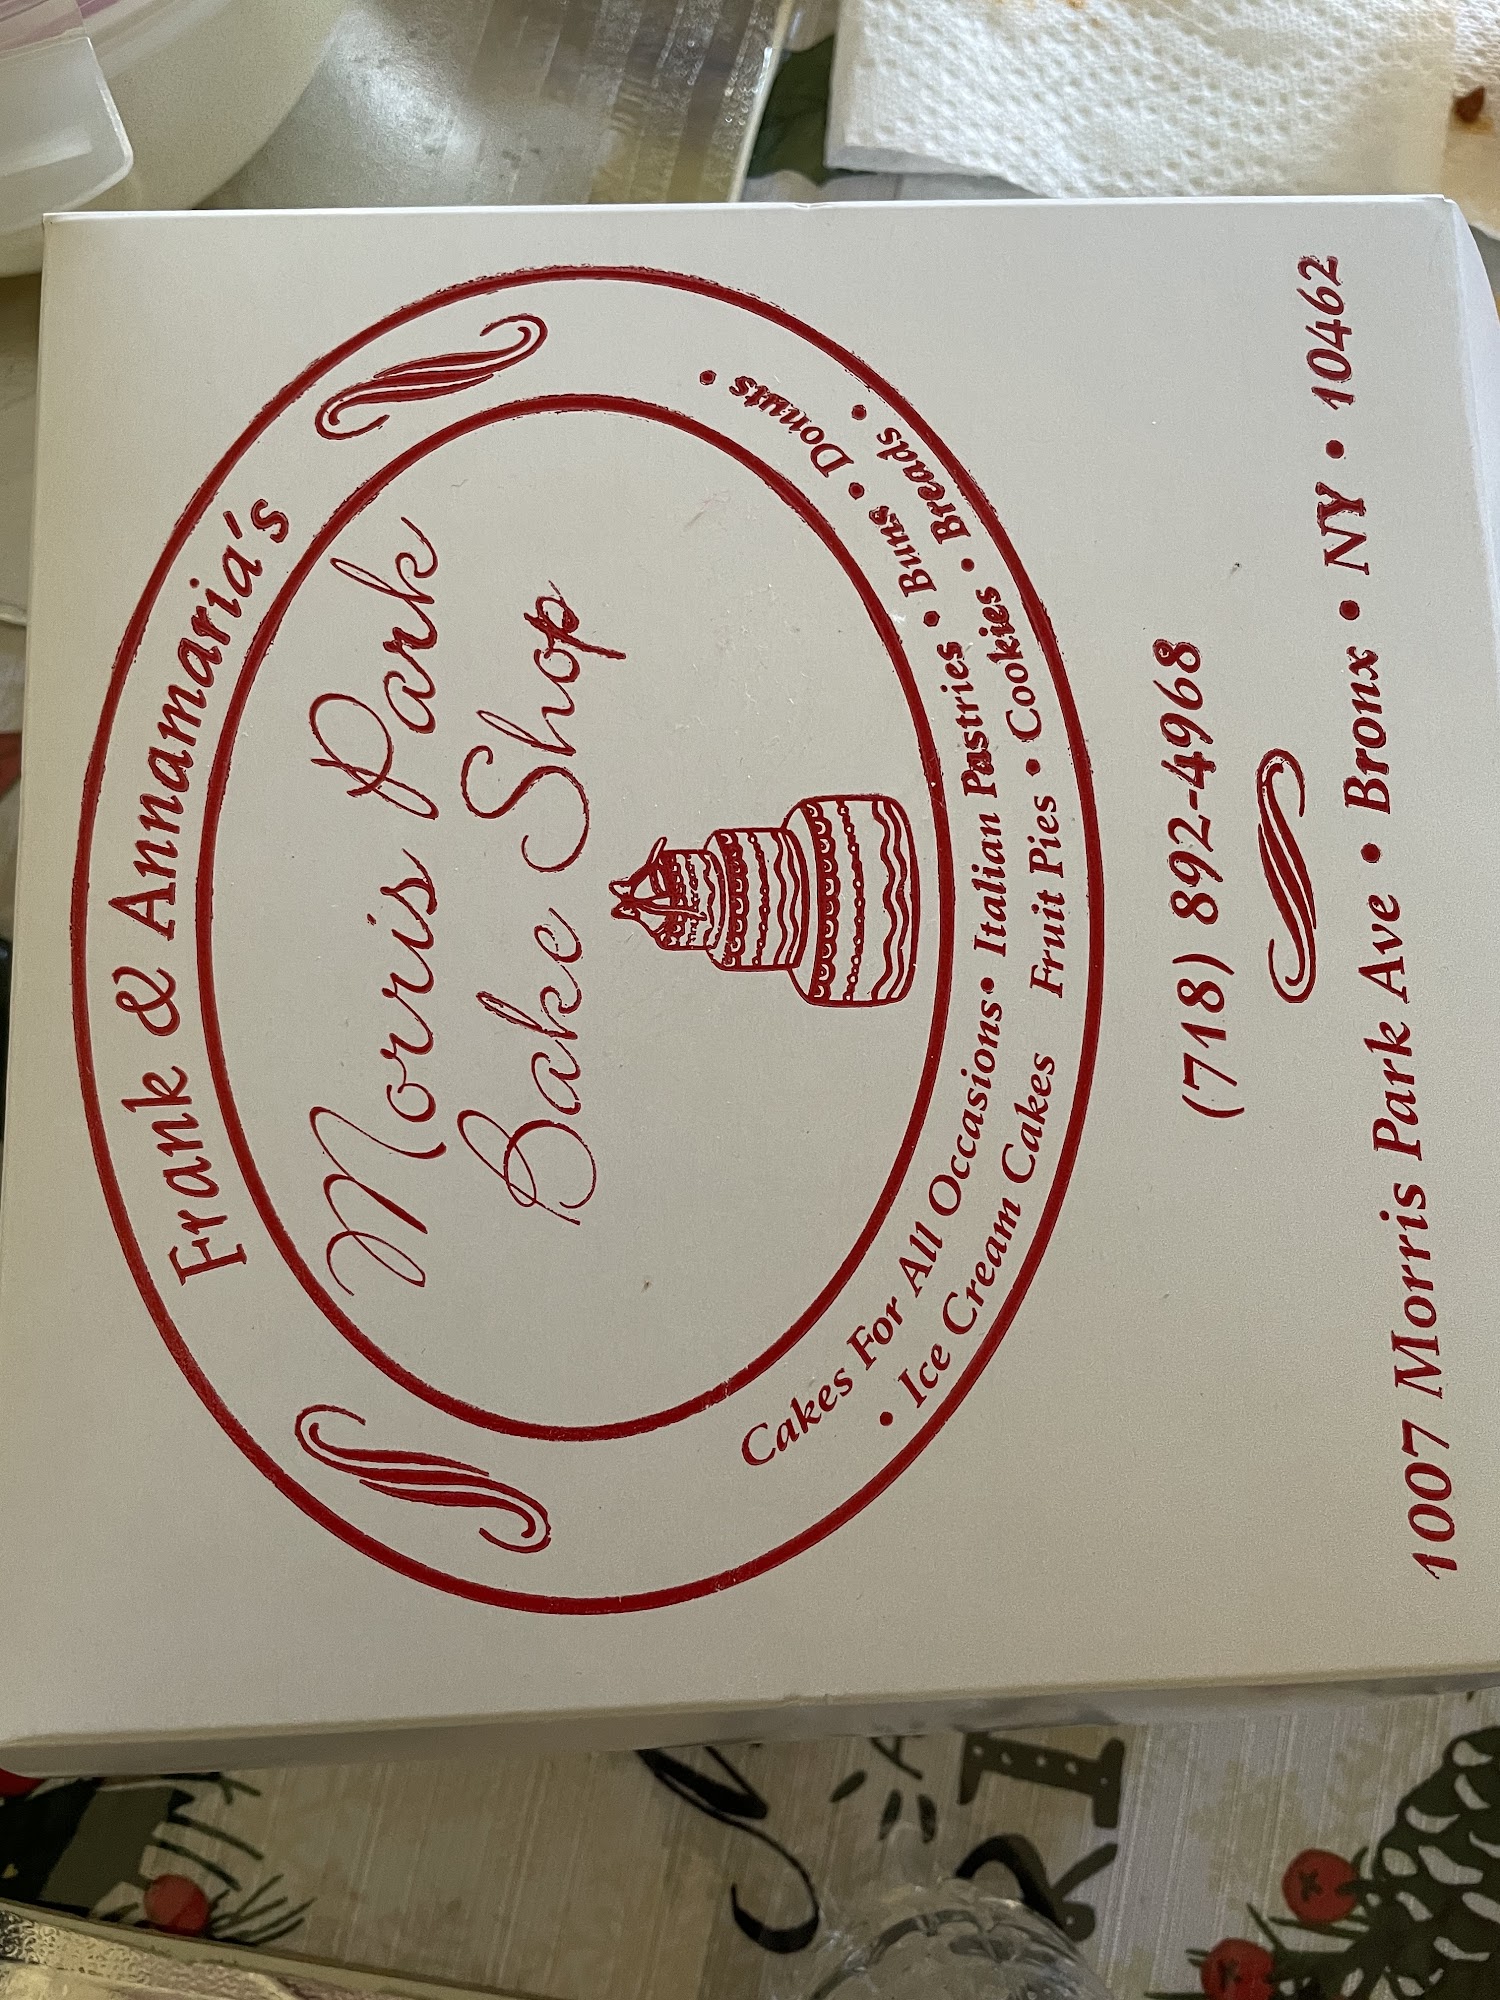 Frank & Annamaria's
Morris Park
Bake Shop
Cakes For All Occasions • Italian Pastries • Buns • Donuts •
• Ice Cream Cakes Fruit Pies • Cookies • Breads •
(718) 892-4968
1007 Morris Park Ave • Bronx • NY • 10462